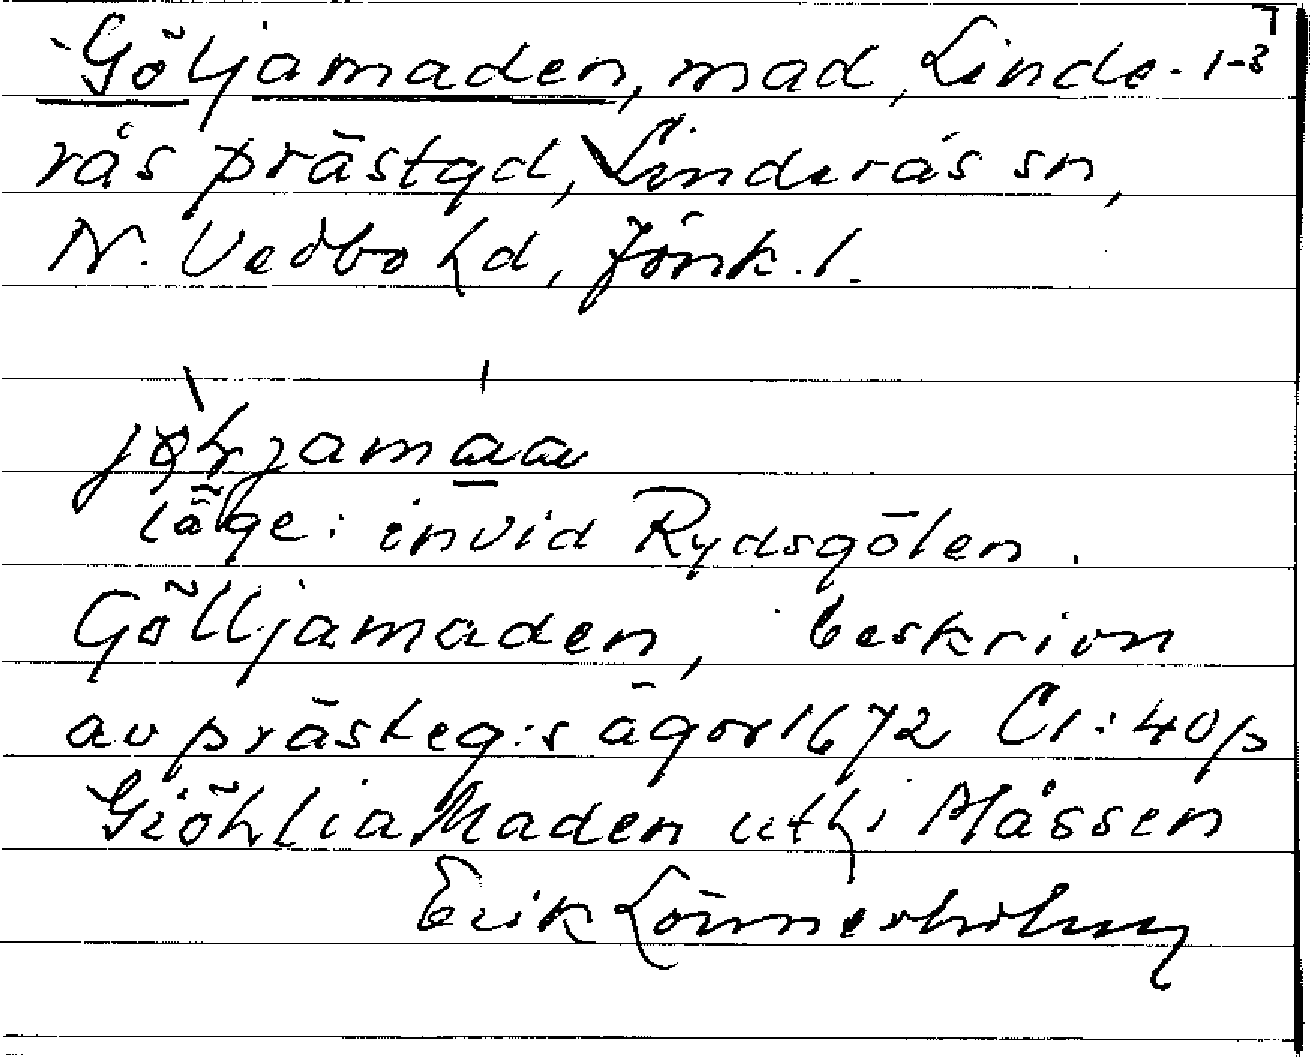 Göljamaden, mad, Linde- 1-3
rås prästgd, Linderås sn,
N. Vedbo hd, Jönk. l.
läge: invid Rydsgölen.
Gölljamaden, beskrivn
av prästeg:s ägor 1672 C1:40 p
Giöhlia Maden uthi Måssen
Erik Lönnerholm